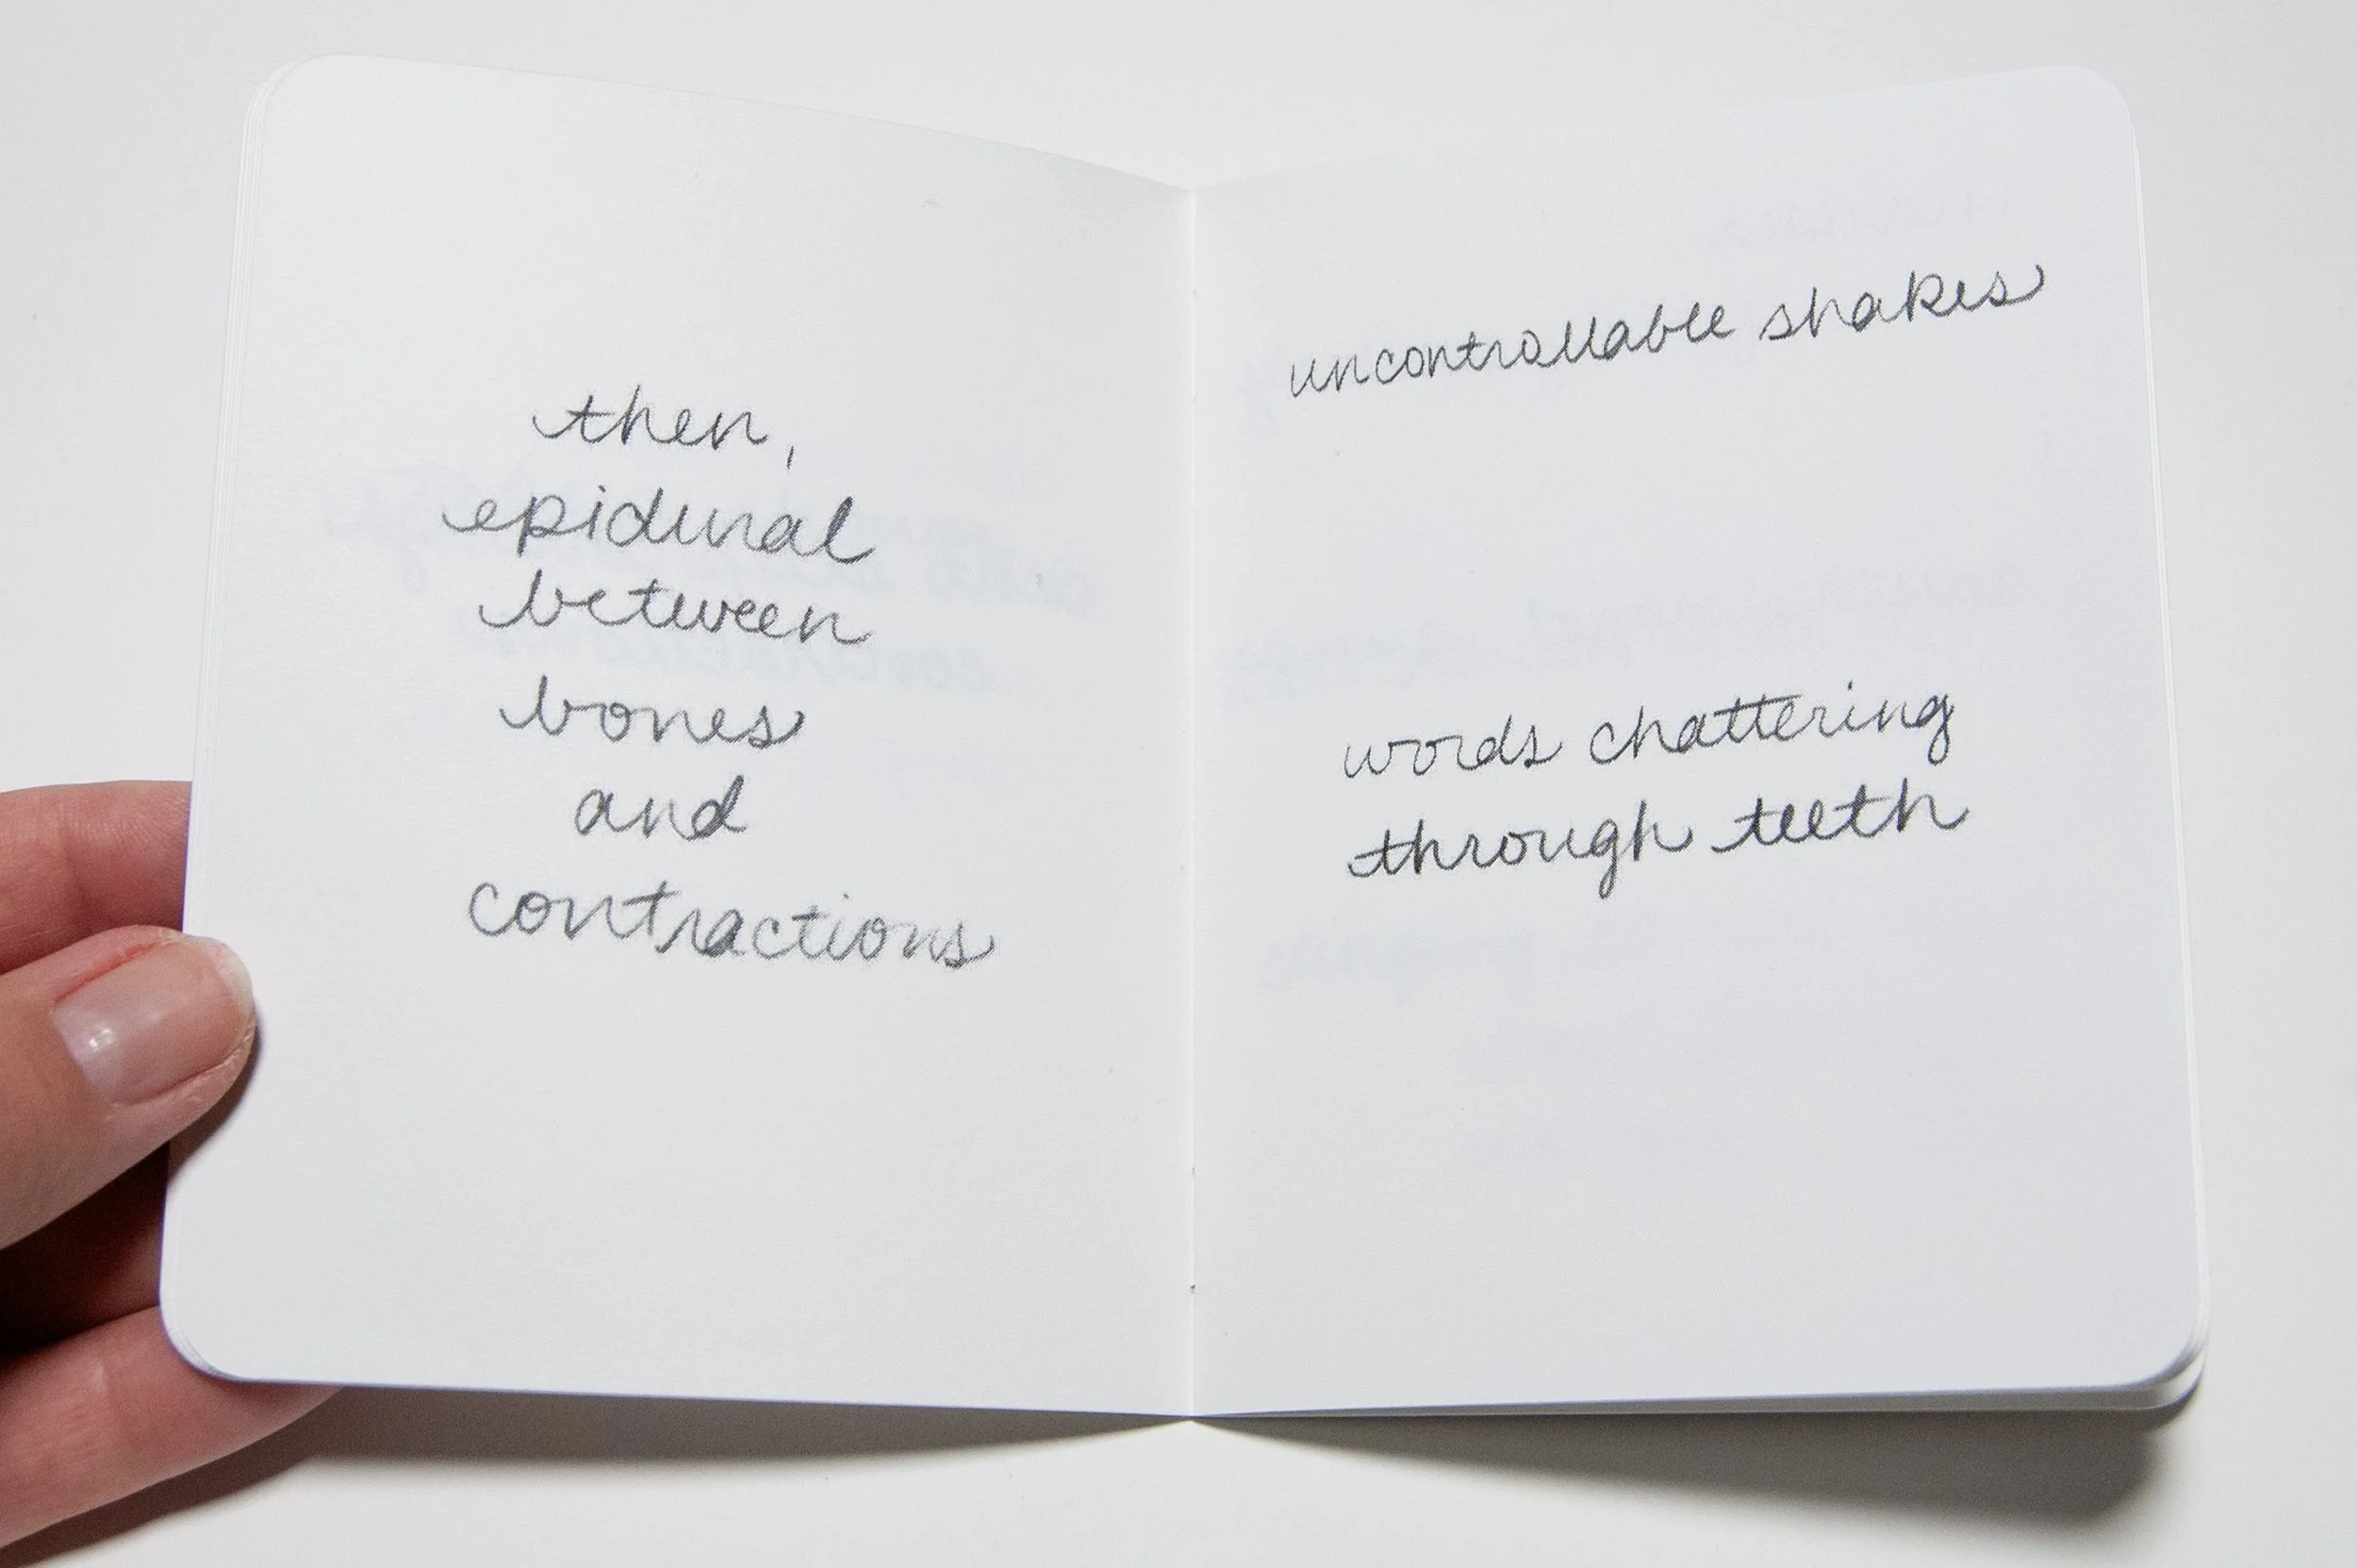 then,
epidural
between
bones
and
contractions
uncontrollable shakes
words chattering
through teeth